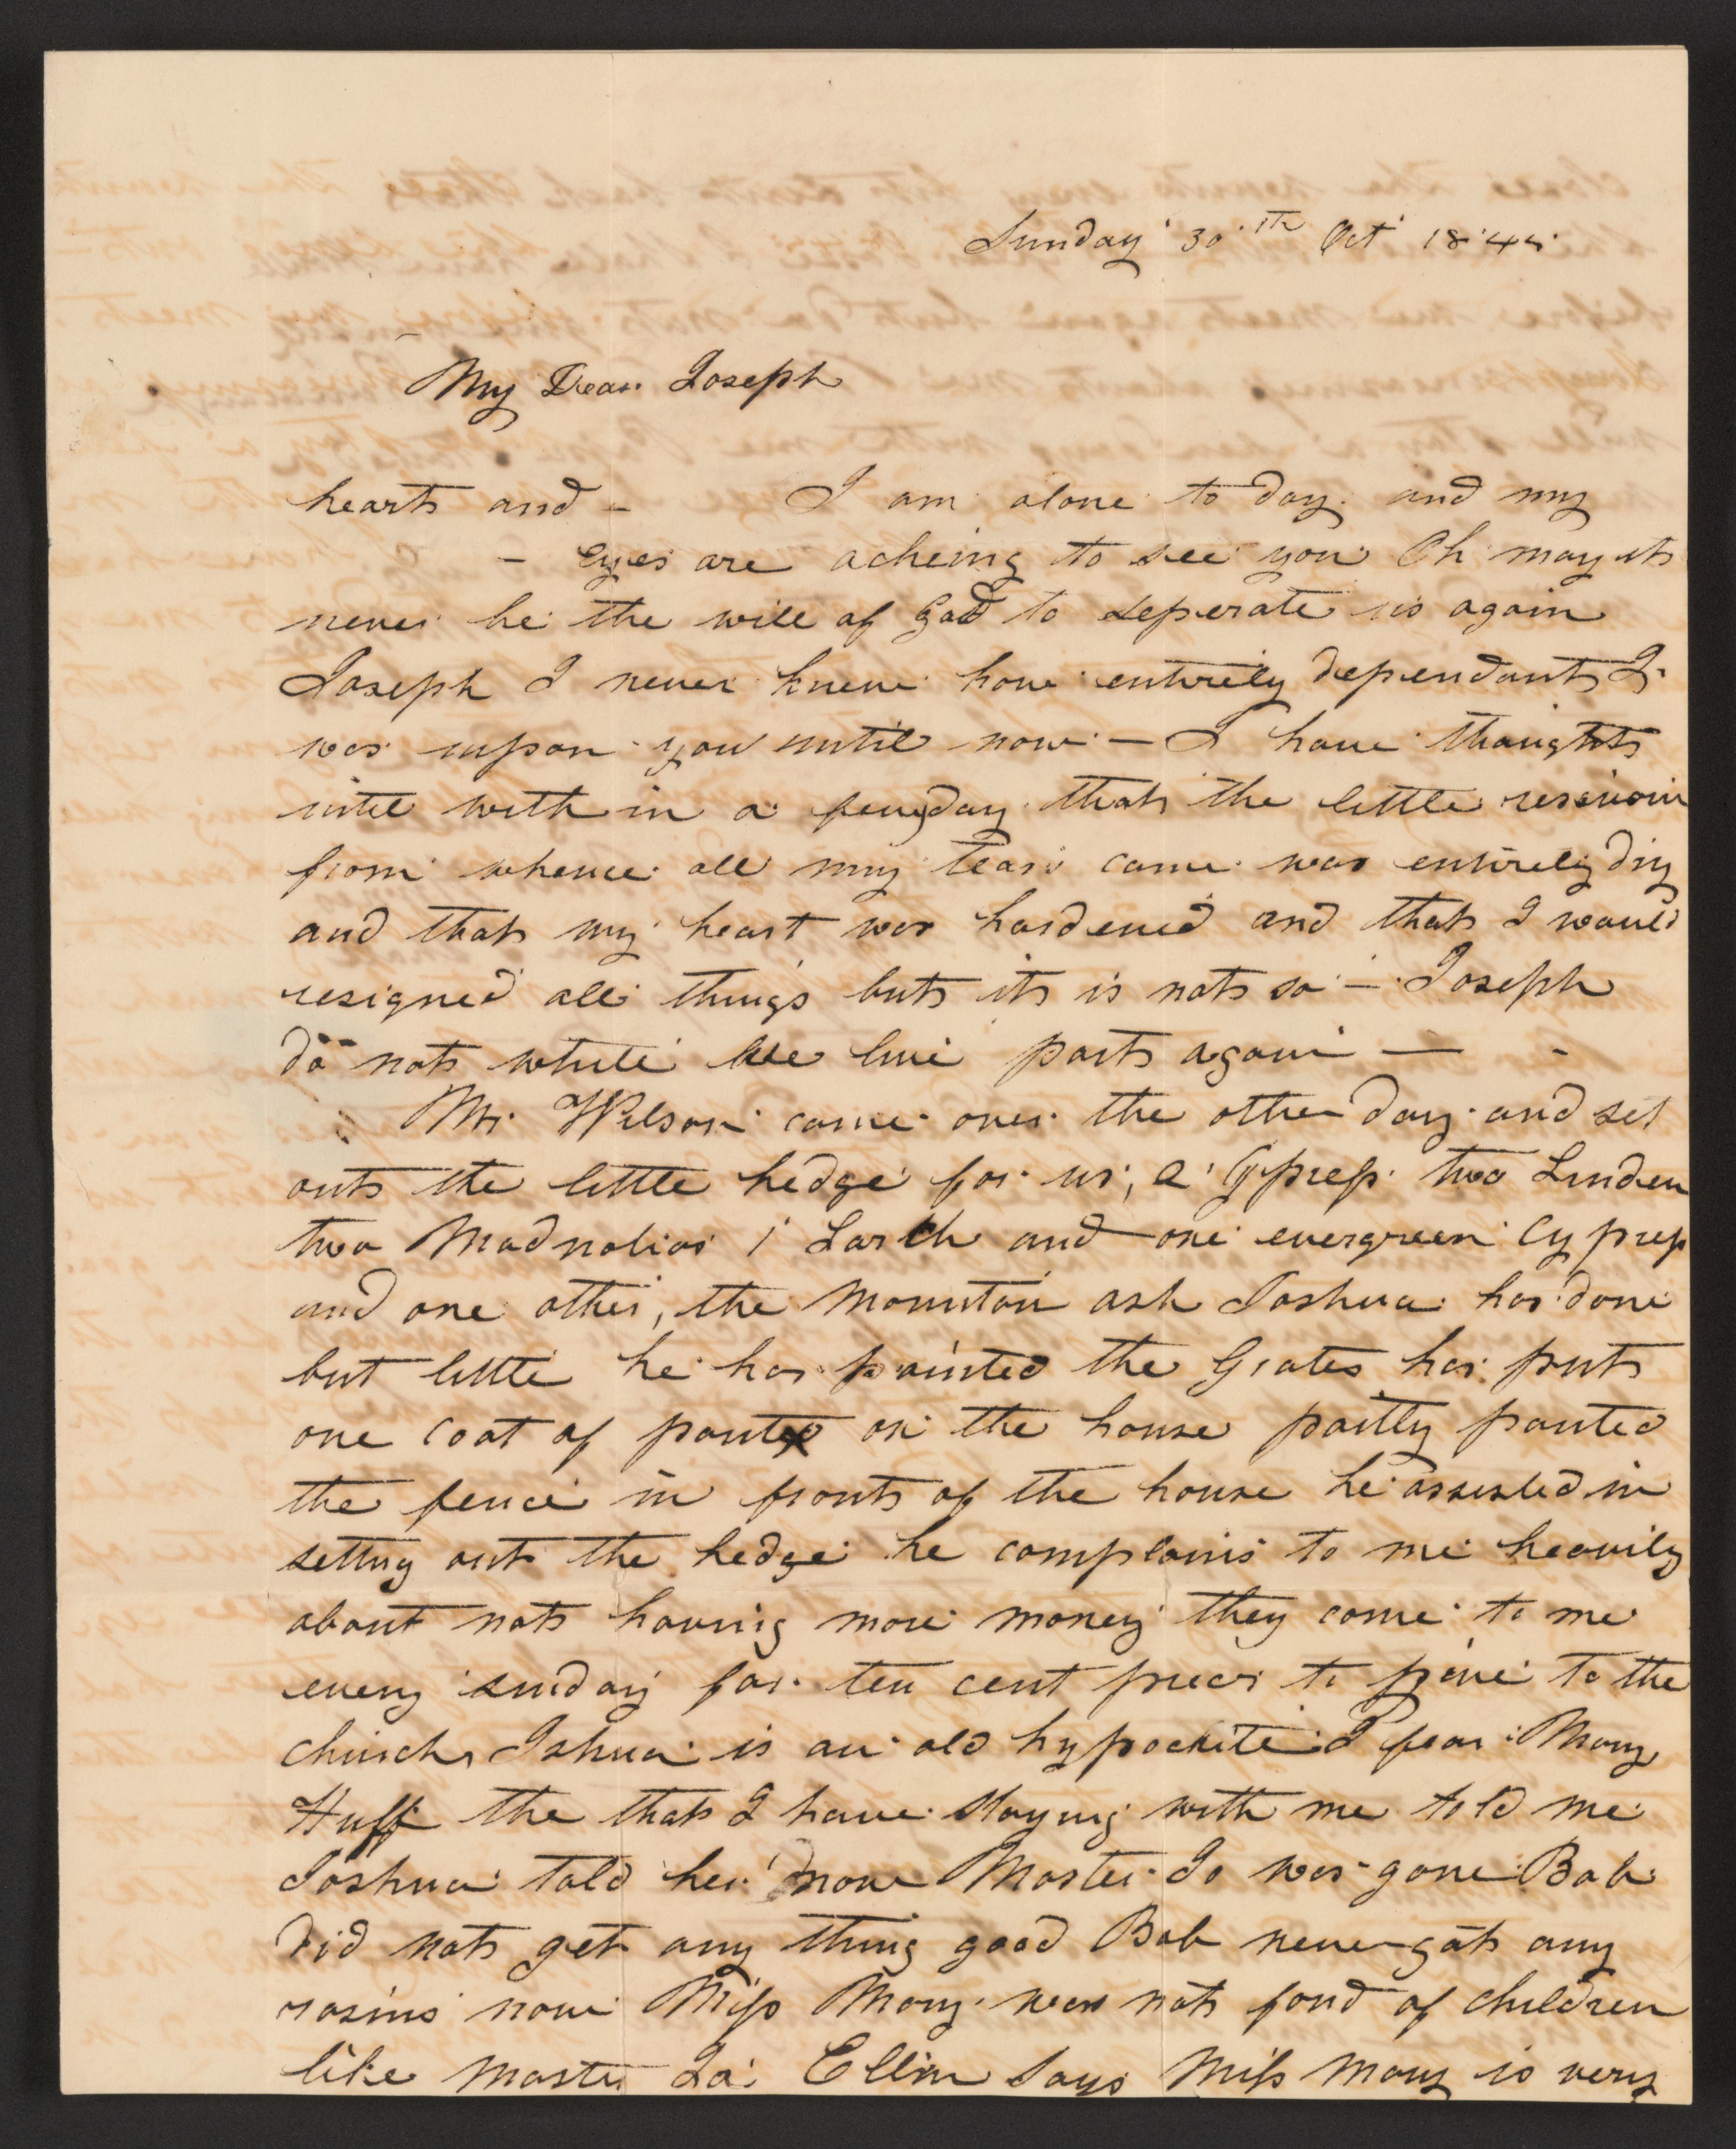 Sunday 30th Oct 1844
My Dear Joseph
hearts and - I am alone to day and my
- eyes are acheing to see you Oh may it
never be the will of God to seperate us again
Joseph I never knew how entirely dependant I
was upon you until now — I have thought
until with in a few day that the little reservoir
from whence all my tears came was entirely dry
and that my heart was hardened and that I would
resigned all things but it is not so — Joseph
do not while We live part again —
Mr. Wilson came over the other day and set
out the little hedge for us, a Cypress two Linden
two Madnolias 1 Larch and one evergreen Cypress
and one other, the Mountain ash Joshua has done
but little he has painted the Grates has put
one coat of paint on the house partly painted
the fence in front of the house he assisted in
setting out the hedge he complains to me heavily
about not having more money they come to me
every sunday for ten cent pieces to give to the
church Joshua is an old hypockite I fear Mary
Huff the that I have staying with me told me
Joshua told her now Master Jo was gone Bob
did not get any thing good Bob never gat any
rasins now Miss Mary was not fond of children
like Master Jo Ellin says Miss Mary is very